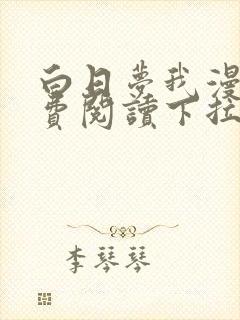 白日夢我漫
費閱讀下拉
李琴琴